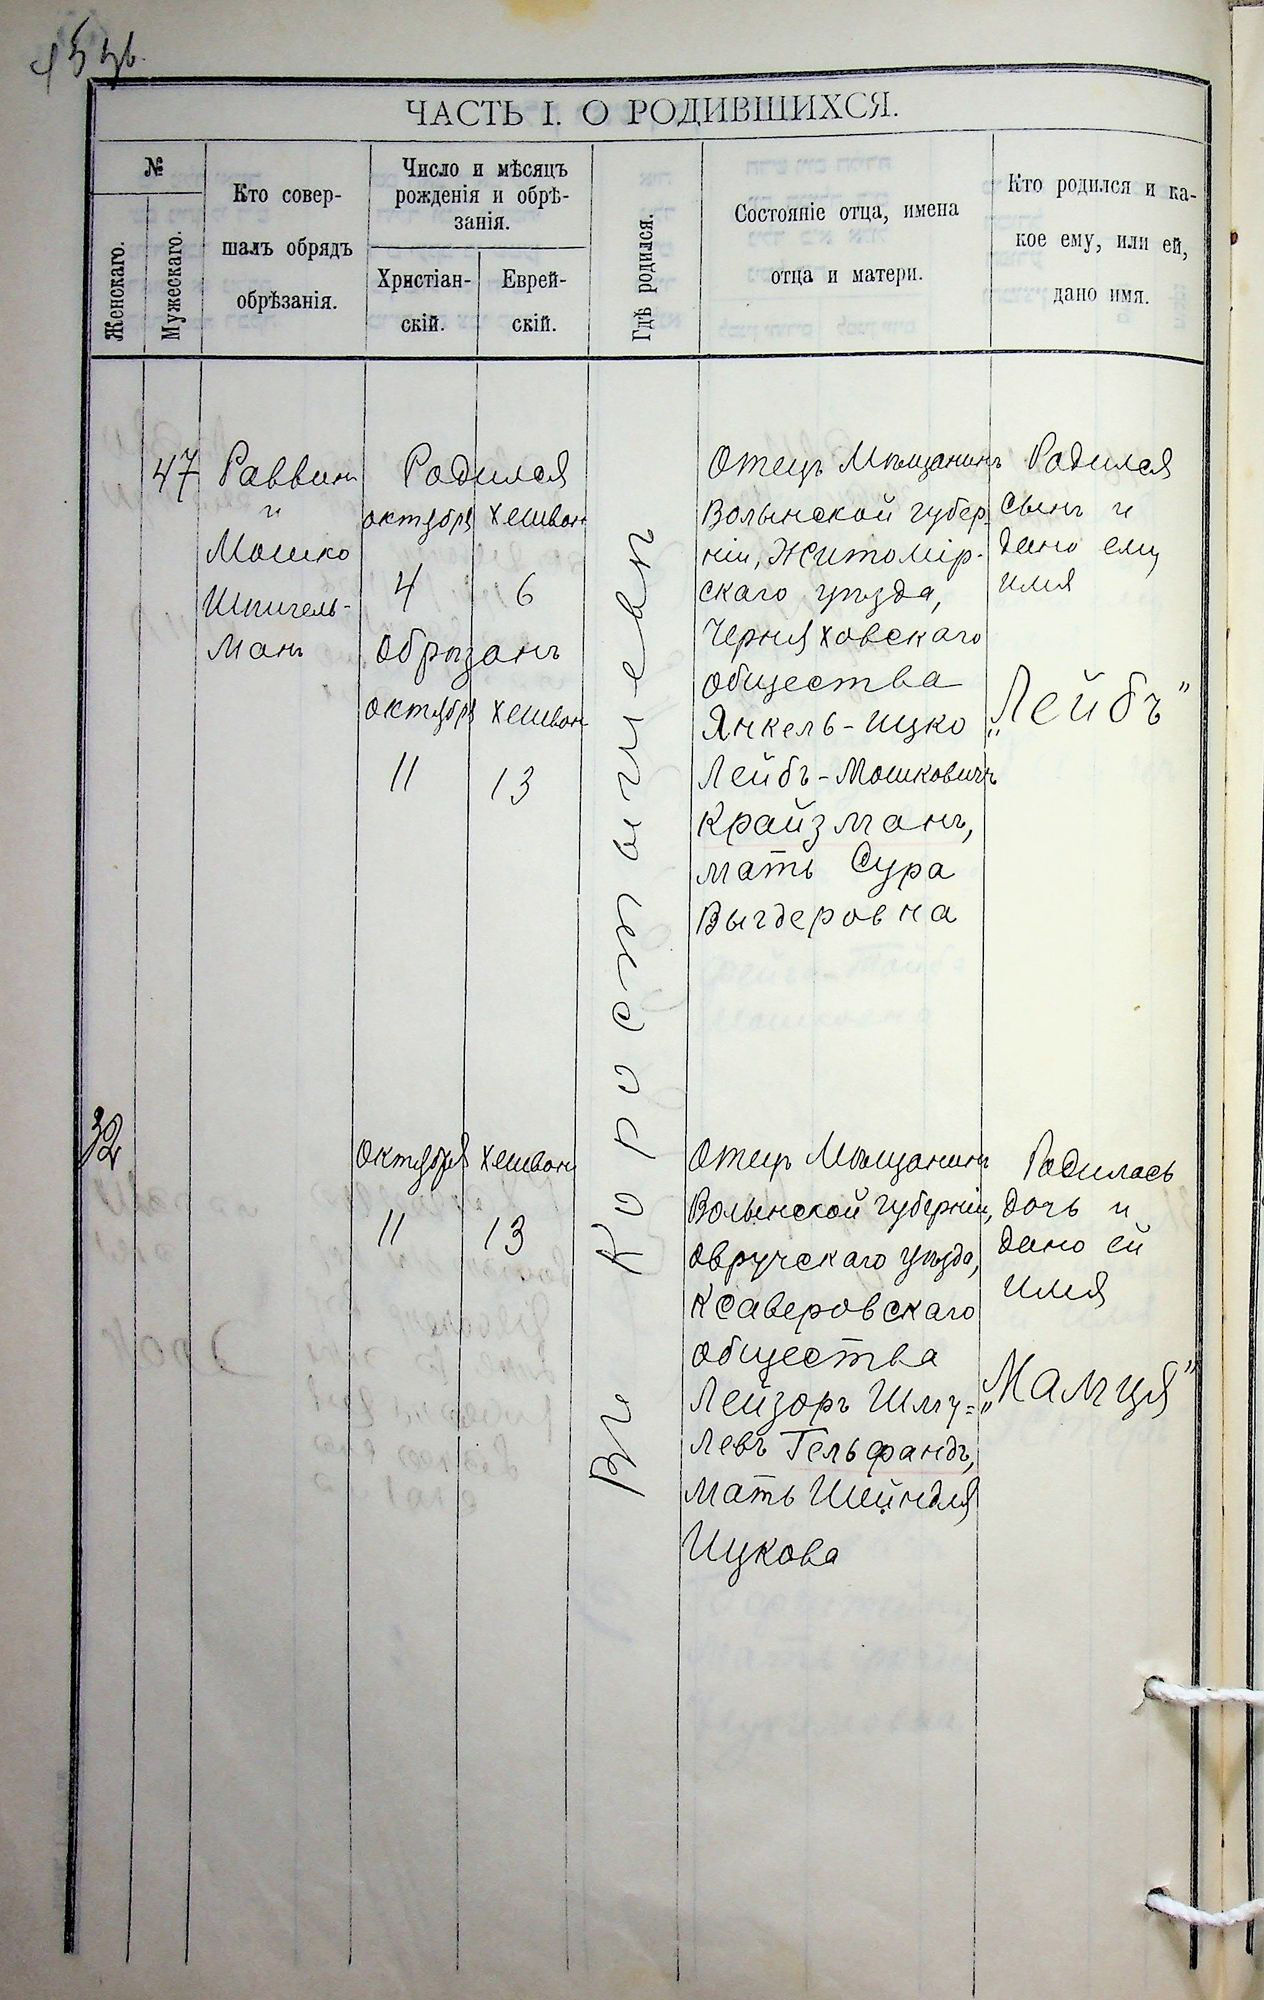 ЧАСТЬ I. О РОДИВШИХСЯ.
№
Женскаго.
Мужескаго.
Кто совер-
шалъ обрядъ
обрѣзанія.
Число и мѣсяцъ
рожденія и обрѣ-
занія.
Христіан-
скій.
Еврей-
скій.
Гдѣ родился.
Состояніе отца, имена
отца и матери.
Кто родился и ка-
кое ему, или ей,
дано имя.
47
Раввинъ
и
Мошко
Шпигель-
манъ
Родился
октября Хешванъ
4 6
Обрѣзанъ
октября Хешванъ
11 13
Въ Коростышевѣ
Отецъ Мѣщанинъ
Волынской губер-
ніи, Житомір-
скаго уѣзда,
Черняховскаго
общества
Янкель-Ицко
Лейбъ-Мошковичъ
Крайзманъ,
мать Сура
Выгдеровна
Родился
сынъ и
дано ему
имя
„Лейбъ"
32
октября Хешванъ
11 13
Отецъ Мѣщанинъ
Волынской губерніи,
овручскаго уѣзда,
Ксаверовскаго
общества
Лейзоръ Шму-
левъ Гельфандъ,
мать Шейндля
Ицкова
Родилась
дочь и
дано ей
имя
„Малця"